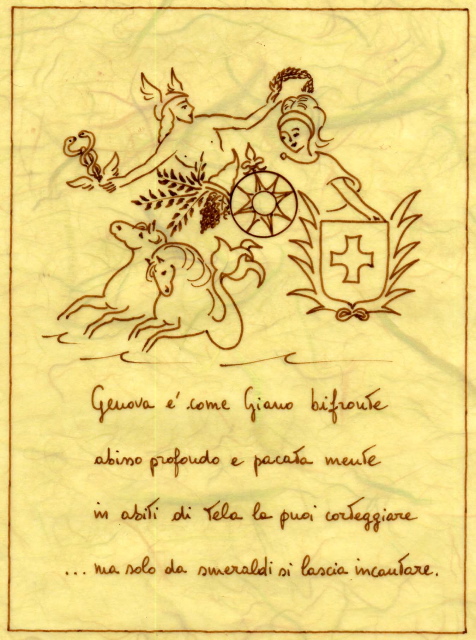 Genova é come Giano bifronte
abisso profondo e pacata mente
in abiti di tela la puoi corteggiare
... ma solo da smeraldi si lascia incantare.